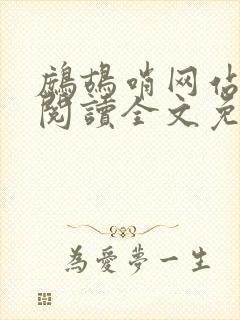 鷓鴣哨网佔
閱讀全文免
為愛夢一生